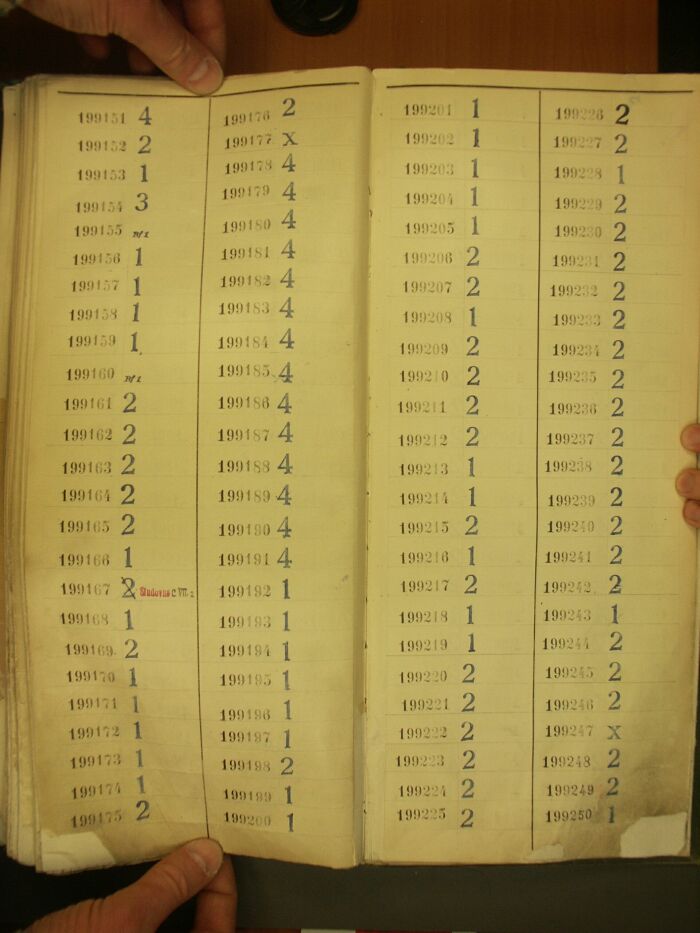 199151 4
199152 2
199153 1
199154 3
199155
199156 1
199157 1
199158 1
199159 1
199160
199161 2
199162 2
199163 2
199164 2
199165 2
199166 1
199167 2 Studovna C. VII. 2
199168 1
199169 2
199170 1
199171 1
199172 1
199173 1
199174 1
199175 2
199176 2
199177 X
199178 4
199179 4
199180 4
199181 4
199182 4
199183 4
199184 4
199185 4
199186 4
199187 4
199188 4
199189 4
199190 4
199191 4
199192 1
199193 1
199194 1
199195 1
199196 1
199197 1
199198 2
199199 1
199200 1
199201 1
199202 1
199203 1
199204 1
199205 1
199206 2
199207 2
199208 1
199209 2
199210 2
199211 2
199212 2
199213 1
199214 1
199215 2
199216 1
199217 2
199218 1
199219 1
199220 2
199221 2
199222 2
199223 2
199224 2
199225 2
199226 2
199227 2
199228 1
199229 2
199230 2
199231 2
199232 2
199233 2
199234 2
199235 2
199236 2
199237 2
199238 2
199239 2
199240 2
199241 2
199242 2
199243 1
199244 2
199245 2
199246 2
199247 X
199248 2
199249 2
199250 1